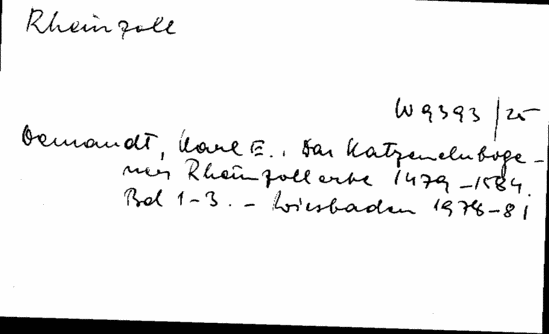 Rheinzoll
W 9393/25
Demandt, Karl E.: Das Katzenelnboge-
ner Rheinzollerbe 1479-1584.
Bd 1-3. - Wiesbaden 1978-81